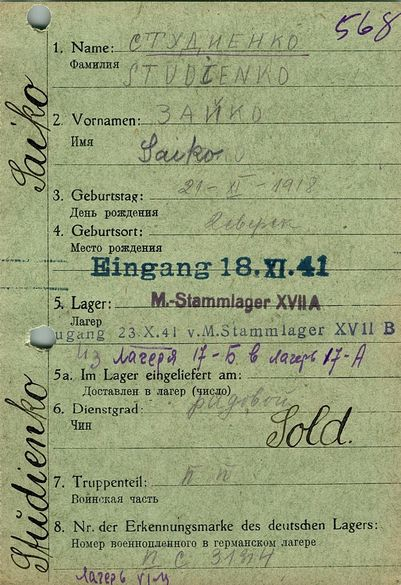 568
1. Name: СТУДИЕНКО
Фамилия STUDIENKO
2. Vornamen: ЗАЙКО
Имя Saiko
3. Geburtstag: 21-XI-1918
День рождения
4. Geburtsort:
Место рождения
Eingang 18.XI.41
5. Lager: M.-Stammlager XVII A
Лагерь
ugang 23.X.41 v.M.Stammlager XVII B
Из лагеря 17-Б в лагерь 17-А
5a. Im Lager eingeliefert am:
Доставлен в лагер (число)
6. Dienstgrad: рядовой
Чин Sold.
7. Truppenteil: п п
Воинская часть
8. Nr. der Erkennungsmarke des deutschen Lagers:
Номер военнопленного в германском лагере
Лагерь
Saiko
Studienko